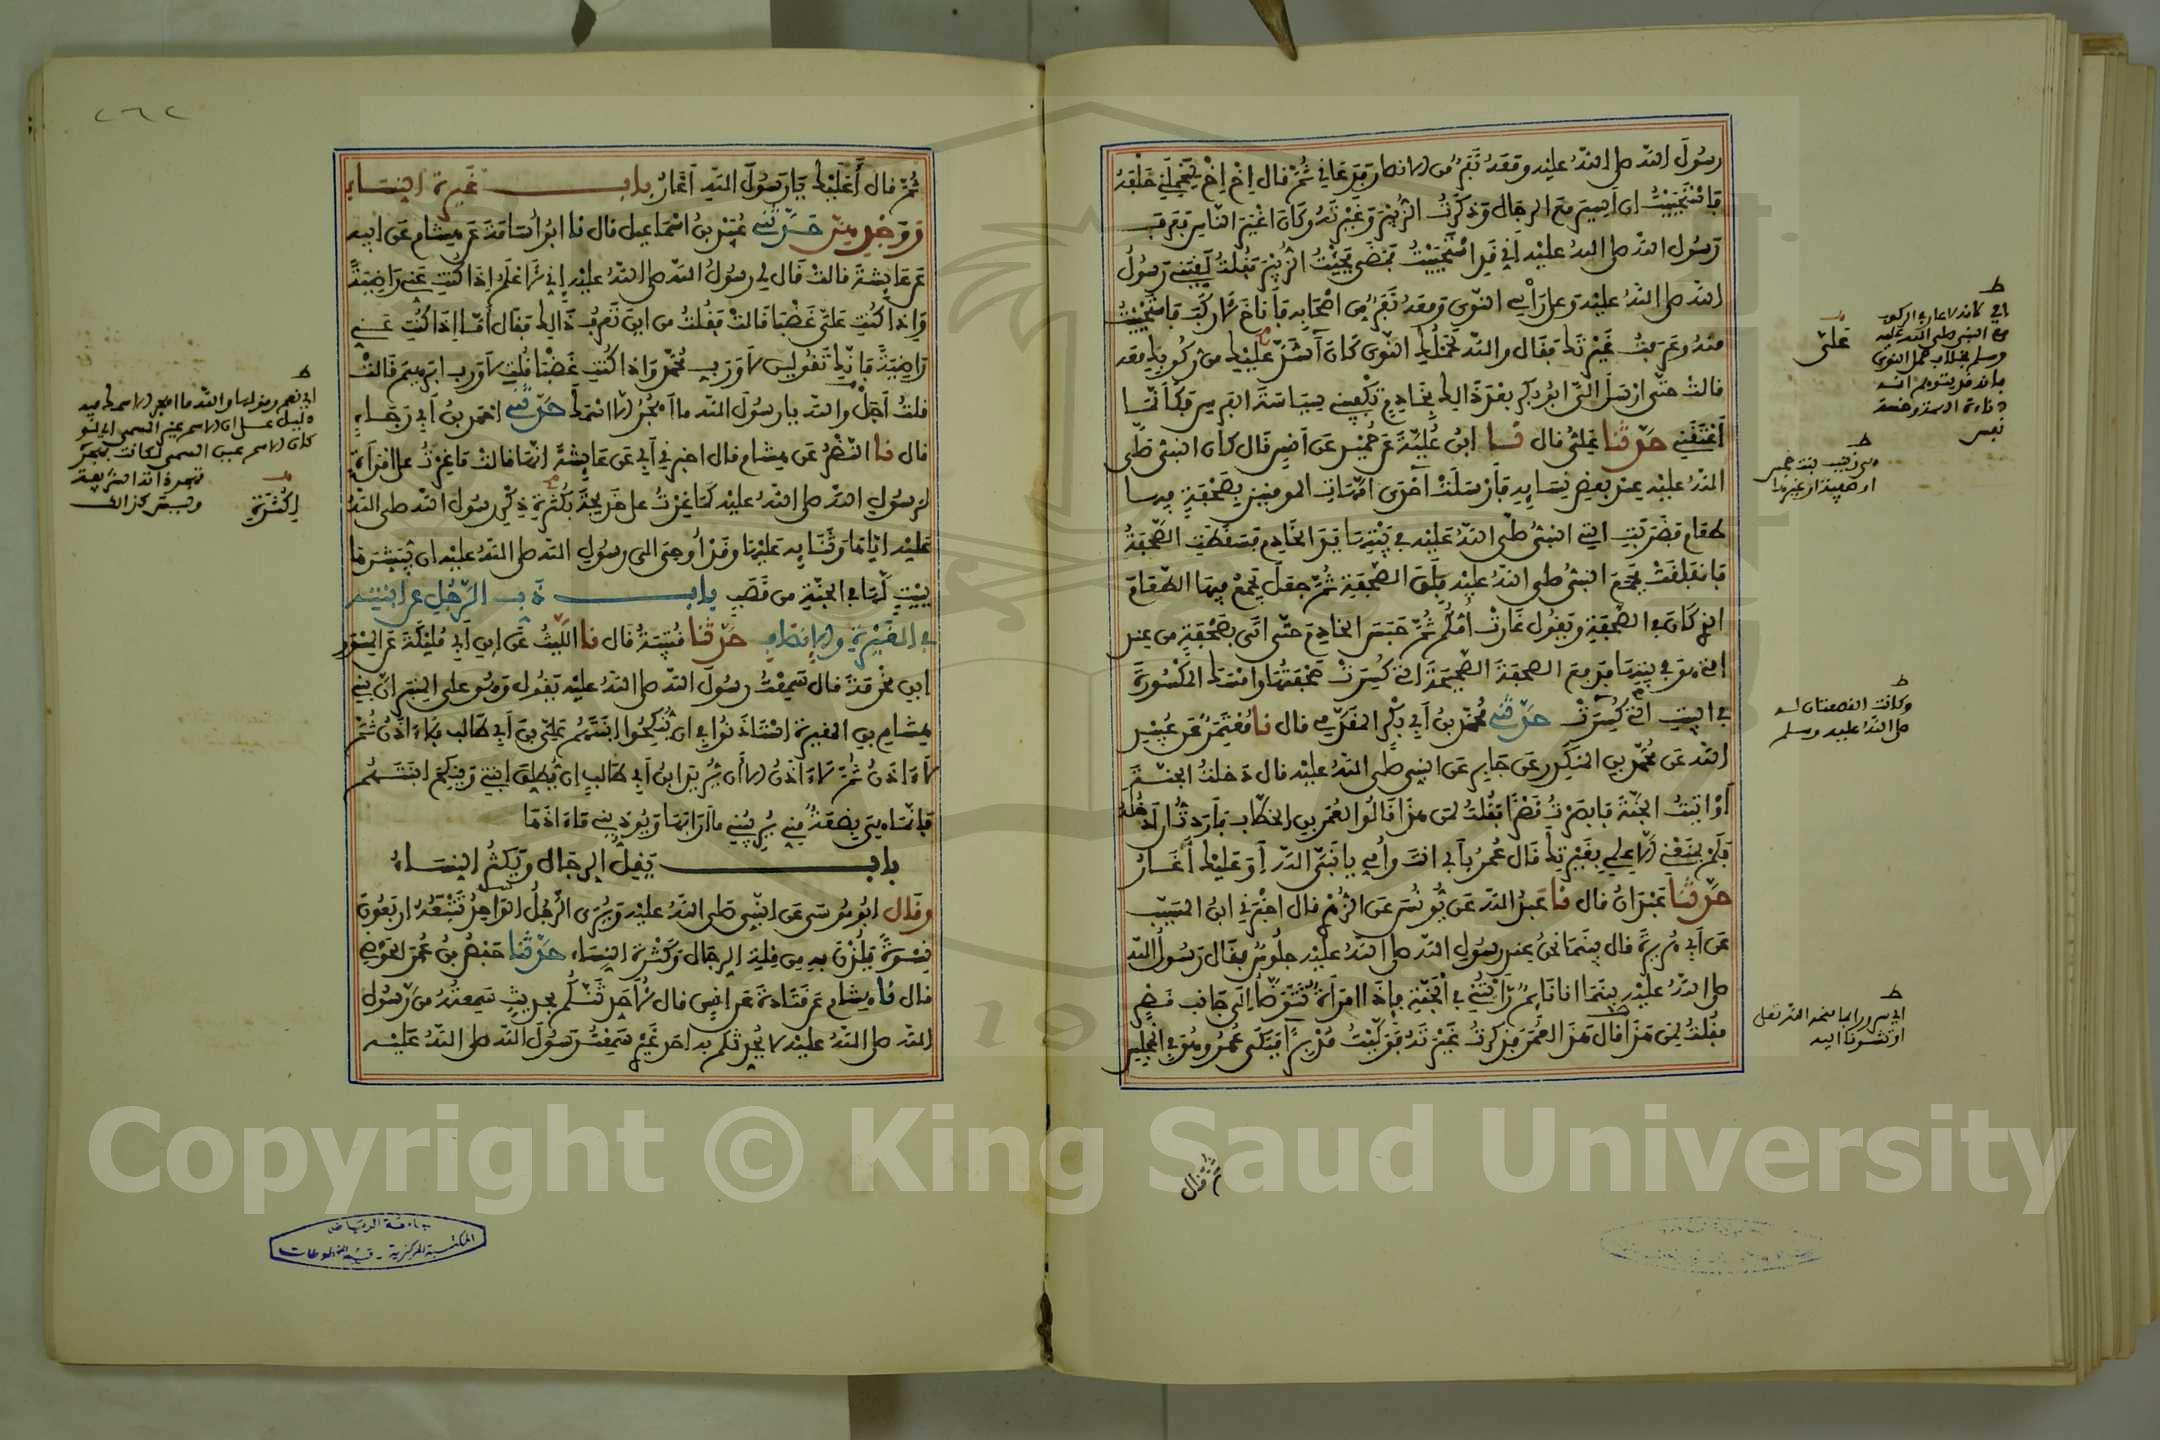 رسول الله صلى الله عليه ومعه نفر من الانصار فدعاني ثم قال اخ اخ ليحملني خلفه
فاستحييت ان اسير مع الرجال وذكرت الزبير وغيرته وكان اغير الناس فعرف
رسول الله صلى الله عليه اني قد استحييت فمضى فجئت الزبير فقلت لقيني رسول
الله صلى الله عليه وعلى رأسي النوى ومعه نفر من اصحابه فاناخ لاركب فاستحييت
منه وعرفت غيرتك فقال والله لحملك النوى كان اشد عليك من ركوبك معه
قالت حتى ارسل الي ابو بكر بعد ذالك بخادم تكفيني سياسة الفرس فكانما
اعتقني حدثنا علي قال نا ابن علية عن حميد عن انس قال كان النبي صلى
الله عليه عند بعض نسايه فارسلت احدى امهات المومنين بصحفة فيها
طعام فضربت التي النبي صلى الله عليه في بيتها يد الخادم فسقطت الصحفة
فانفلقت فجمع النبي صلى الله عليه فلق الصحفة ثم جعل يجمع فيها الطعام
الذي كان في الصحفة ويقول غارت امكم ثم حبس الخادم حتى اتى بصحفة من عند
التي هو في بيتها فدفع الصحفة الصحيحة الى التي كسرت صحفتها وامسك المكسورة
في البيت التي كسرت حدثني محمد بن ابي بكر المقدمي قال نا معتمر عن عبيد
الله عن محمد بن المنكدر عن جابر عن النبي صلى الله عليه قال دخلت الجنة
او اتيت الجنة فابصرت قصرا فقلت لمن هذا قالوا لعمر بن الخطاب فاردت ان ادخله
فلم يمنعني الا علمي بغيرتك قال عمر بابي انت وامي يا نبي الله اوعليك اغار
حدثنا عبدان قال نا عبد الله عن يونس عن الزهري قال اخبرني ابن المسيب
عن ابي هريرة قال بينما نحن عند رسول الله صلى الله عليه جلوس فقال رسول الله
صلى الله عليه بينما انا نايم رأيتني في الجنة فاذا امرأة تتوضأ الى جانب قصر
فقلت لمن هذا قال هذا لعمر فذكرت غيرته فوليت مدبرا فبكى عمر وهو في المجلس
ثم قال
علي
وكانت القصعتان له
صلى الله عليه وسلم
ثم قال أعليك يا رسول الله أغار باب غيرة النساء
ووجدهن حدثني عبيد بن اسماعيل قال نا ابو أسامة عن هشام عن ابيه
عن عايشة قالت قال لي رسول الله صلى الله عليه إني لأعلم إذا كنت عني راضية
وإذا كنت علي غضبا قالت فقلت من اين تعرف ذالك فقال أما إذا كنت عني
راضية فإنك تقولين لا ورب محمد واذا كنت غضبا قلت لا ورب ابراهيم قالت
قلت أجل والله يا رسول الله ما أهجر الا اسمك حدثني احمد بن أبي رجاء
قال نا النضر عن هشام قال اخبرني أبي عن عايشة انها قالت ما غرت على امرأة
لرسول الله صلى الله عليه كما غرت على خديجة بكثرة ذكر رسول الله صلى الله
عليه اياها وثنايه عليها وقد أوحي الى رسول الله صلى الله عليه ان يبشرها
ببيت لها في الجنة من قصب باب ذب الرجل عن ابنته
في الغيرة والانصاف حدثنا قتيبة قال نا الليث عن ابن أبي مليكة عن المسور
ابن مخرمة قال سمعت رسول الله صلى الله عليه يقول وهو على المنبر ان بني
هشام بن المغيرة استاذنوا في ان ينكحوا ابنتهم علي بن أبي طالب فلا اذن ثم
لا اذن ثم لا اذن الا أن يريد ابن أبي طالب ان يطلق ابنتي وينكح ابنتهم
فإنما هي بضعة مني يريبني ما أرابها ويوذيني ما اذاها
باب يقل الرجال ويكثر النساء
وقال ابو موسى عن النبي صلى الله عليه ويرى الرجل الواحد تتبعه اربعون
نسوة يلذن به من قلة الرجال وكثرة النساء حدثنا حفص بن عمر الحوضي
قال نا هشام عن قتادة عن انس قال لأحدثنكم بحديث سمعته من رسول
الله صلى الله عليه لا يحدثكم به احد غيري سمعت رسول الله صلى الله عليه
لكثرة
٢٦٢
جامعة الرياض
المكتبة المركزية - قسم المخطوطات
Copyright © King Saud University